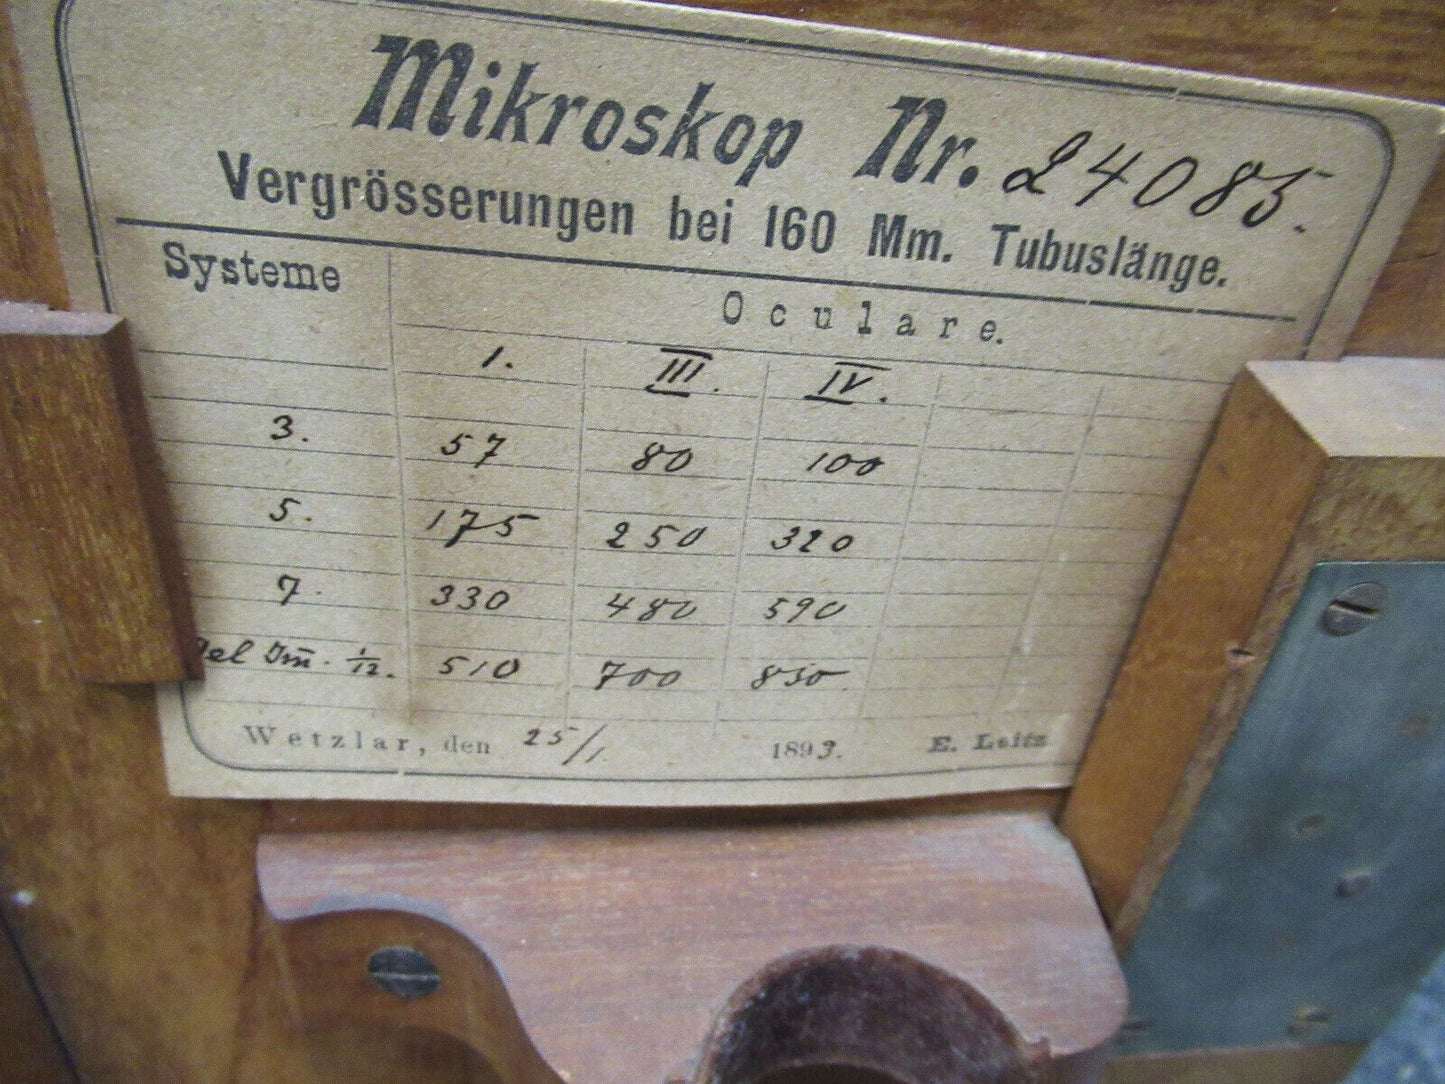 Mikroskop Nr. 24085.
Vergrösserungen bei 160 Mm. Tubuslänge.
Systeme Oculare.
1. III. IV.
3. 57 80 100
5. 175 250 320
7. 330 480 590
Oel Im̄. 1/12. 510 700 850
Wetzlar, den 25/1. 1893. E. Leitz